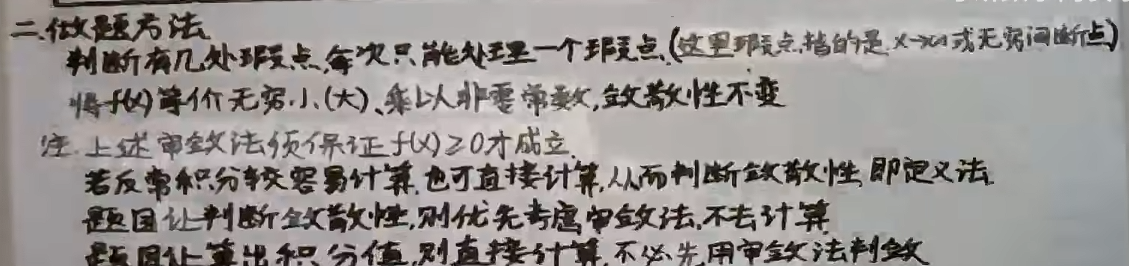 二.做题方法
判断有几处瑕点,每次只能处理一个瑕点.(这里瑕点指的是x→∞或无穷间断点)
将f(x)等价无穷小(大)、乘以非零常数,敛散性不变
注.上述审敛法须保证f(x)≥0才成立.
若反常积分较容易计算,也可直接计算,从而判断敛散性,即定义法.
题目让判断敛散性,则优先考虑审敛法,不去计算
题目让算出积分值,则直接计算,不必先用审敛法判敛